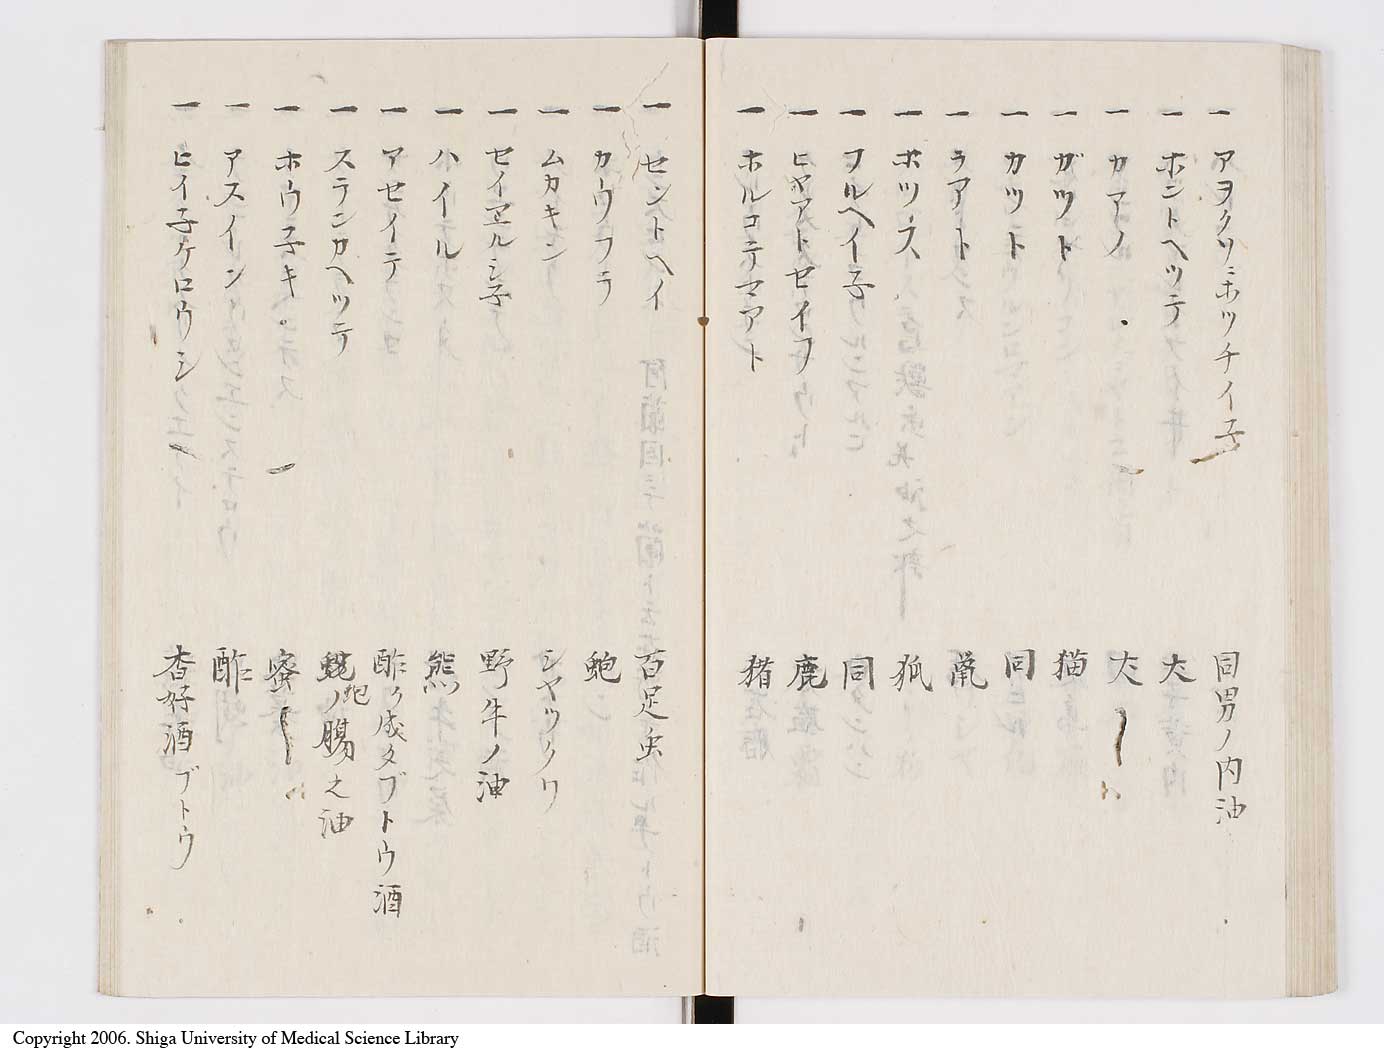 一 アヲクリ、ホツチイ子 同男ノ内油
一 ホントヘツテ 犬
一 カアノ 犬
一 ガツト 猫
一 カツト 同
一 ラアト
一 ホツ子ス 狐
一 フルヘイ子 同
一 ヒヤアトセイフ 鹿
一 ホルコテマアト 猪
一 セントヘイ 百足虫
一 カウフラ 鮑
一 ムカキン シヤツクワ
一 セイヱルシ子 野牛ノ油
一 ハイール 熊
一 アセイテ 酢ク成タブトウ酒
一 ステンカヘツテ ノ腸之油
一 ホウ子キ 蜜
一 アスイン 酢
一 ヒイ子ケロウシ 香好酒ブトウ
Copyright 2006. Shiga University of Medical Science Library